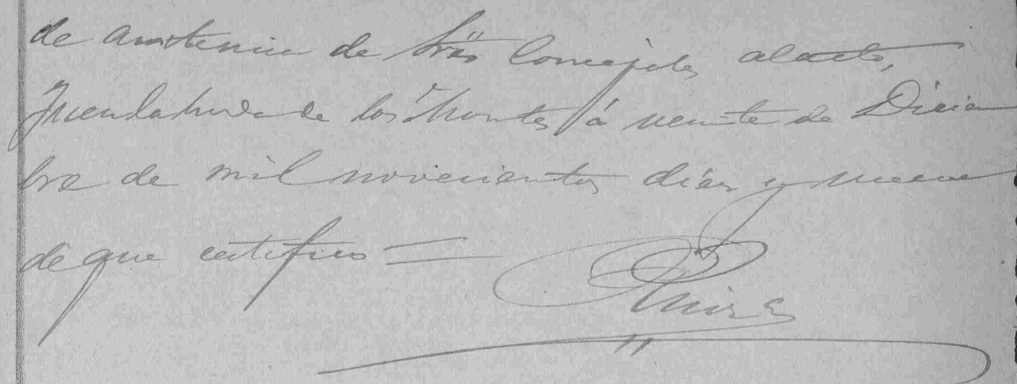 de asistencia de tres Concejales al acto,
Fuenlabrada de los Montes á veinte de Diciem
bre de mil novecientos diez y nueve
de que certifico =